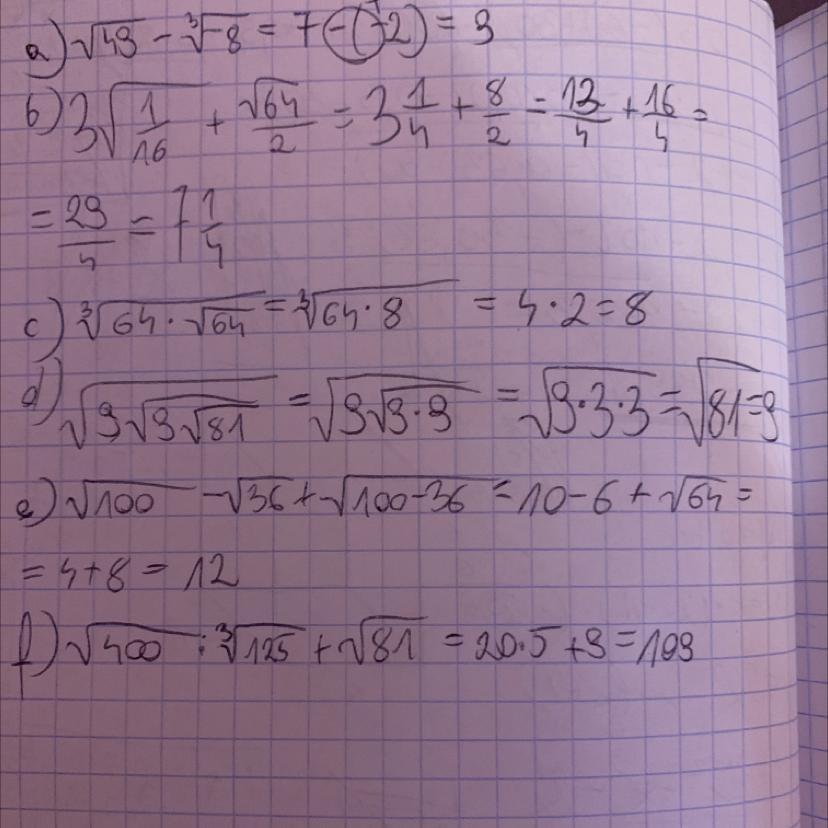 a) √49 - ∛-8 = 7 - (-2) = 9
b) 3√1/16 + √64/2 = 3 1/4 + 8/2 = 13/4 + 16/4 =
= 29/4 = 7 1/4
c) ∛(64 · √64) = ∛(64 · 8) = 4 · 2 = 8
d) √(9√(9√81)) = √(9√(9 · 9)) = √(9 · 3 · 3) = √81 = 9
e) √100 - √36 + √(100 - 36) = 10 - 6 + √64 =
= 4 + 8 = 12
f) √400 : ∛125 + √81 = 20 · 5 + 9 = 109